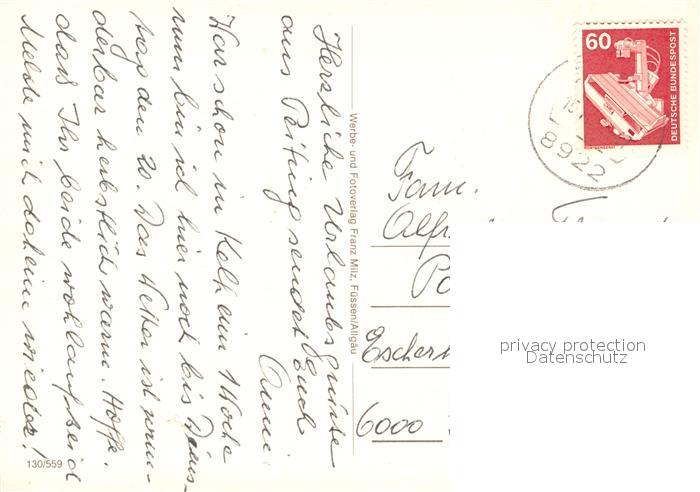 Herzliche Urlaubsgrüsse
aus Peiting sendet Euch
Anni
War schon in Kelheim 1 Woche
nun bin ich hier noch bis Diens-
tag den 20. Das Wetter ist wun-
derbar herbstlich warm. Hoffe
daß Ihr beide wohlauf seid
Melde mich daheim wieder!
130/559
Werbe- und Fotoverlag Franz Milz, Füssen/Allgäu
60
DEUTSCHE BUNDESPOST
8922
Fam.
Alf
Escher
6000
privacy protection
Datenschutz